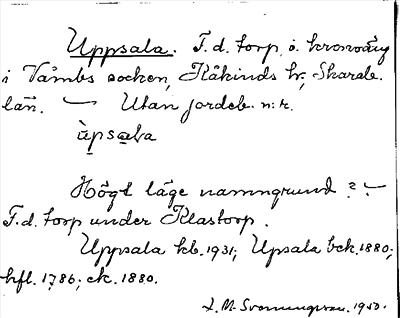 Uppsala. F.d. torp ö. kronoäng
i Våmbs socken, Kåkinds hd, Skarab.
län. — Utan jordeb. n:r.
ùpsala
Högt läge namngrund? —
F.d. torp under Klastorp.
Uppsala kb. 1931; Upsala bck. 1880;
hfl. 1786; ek. 1880.
L. M. Svanungsson. 1950.